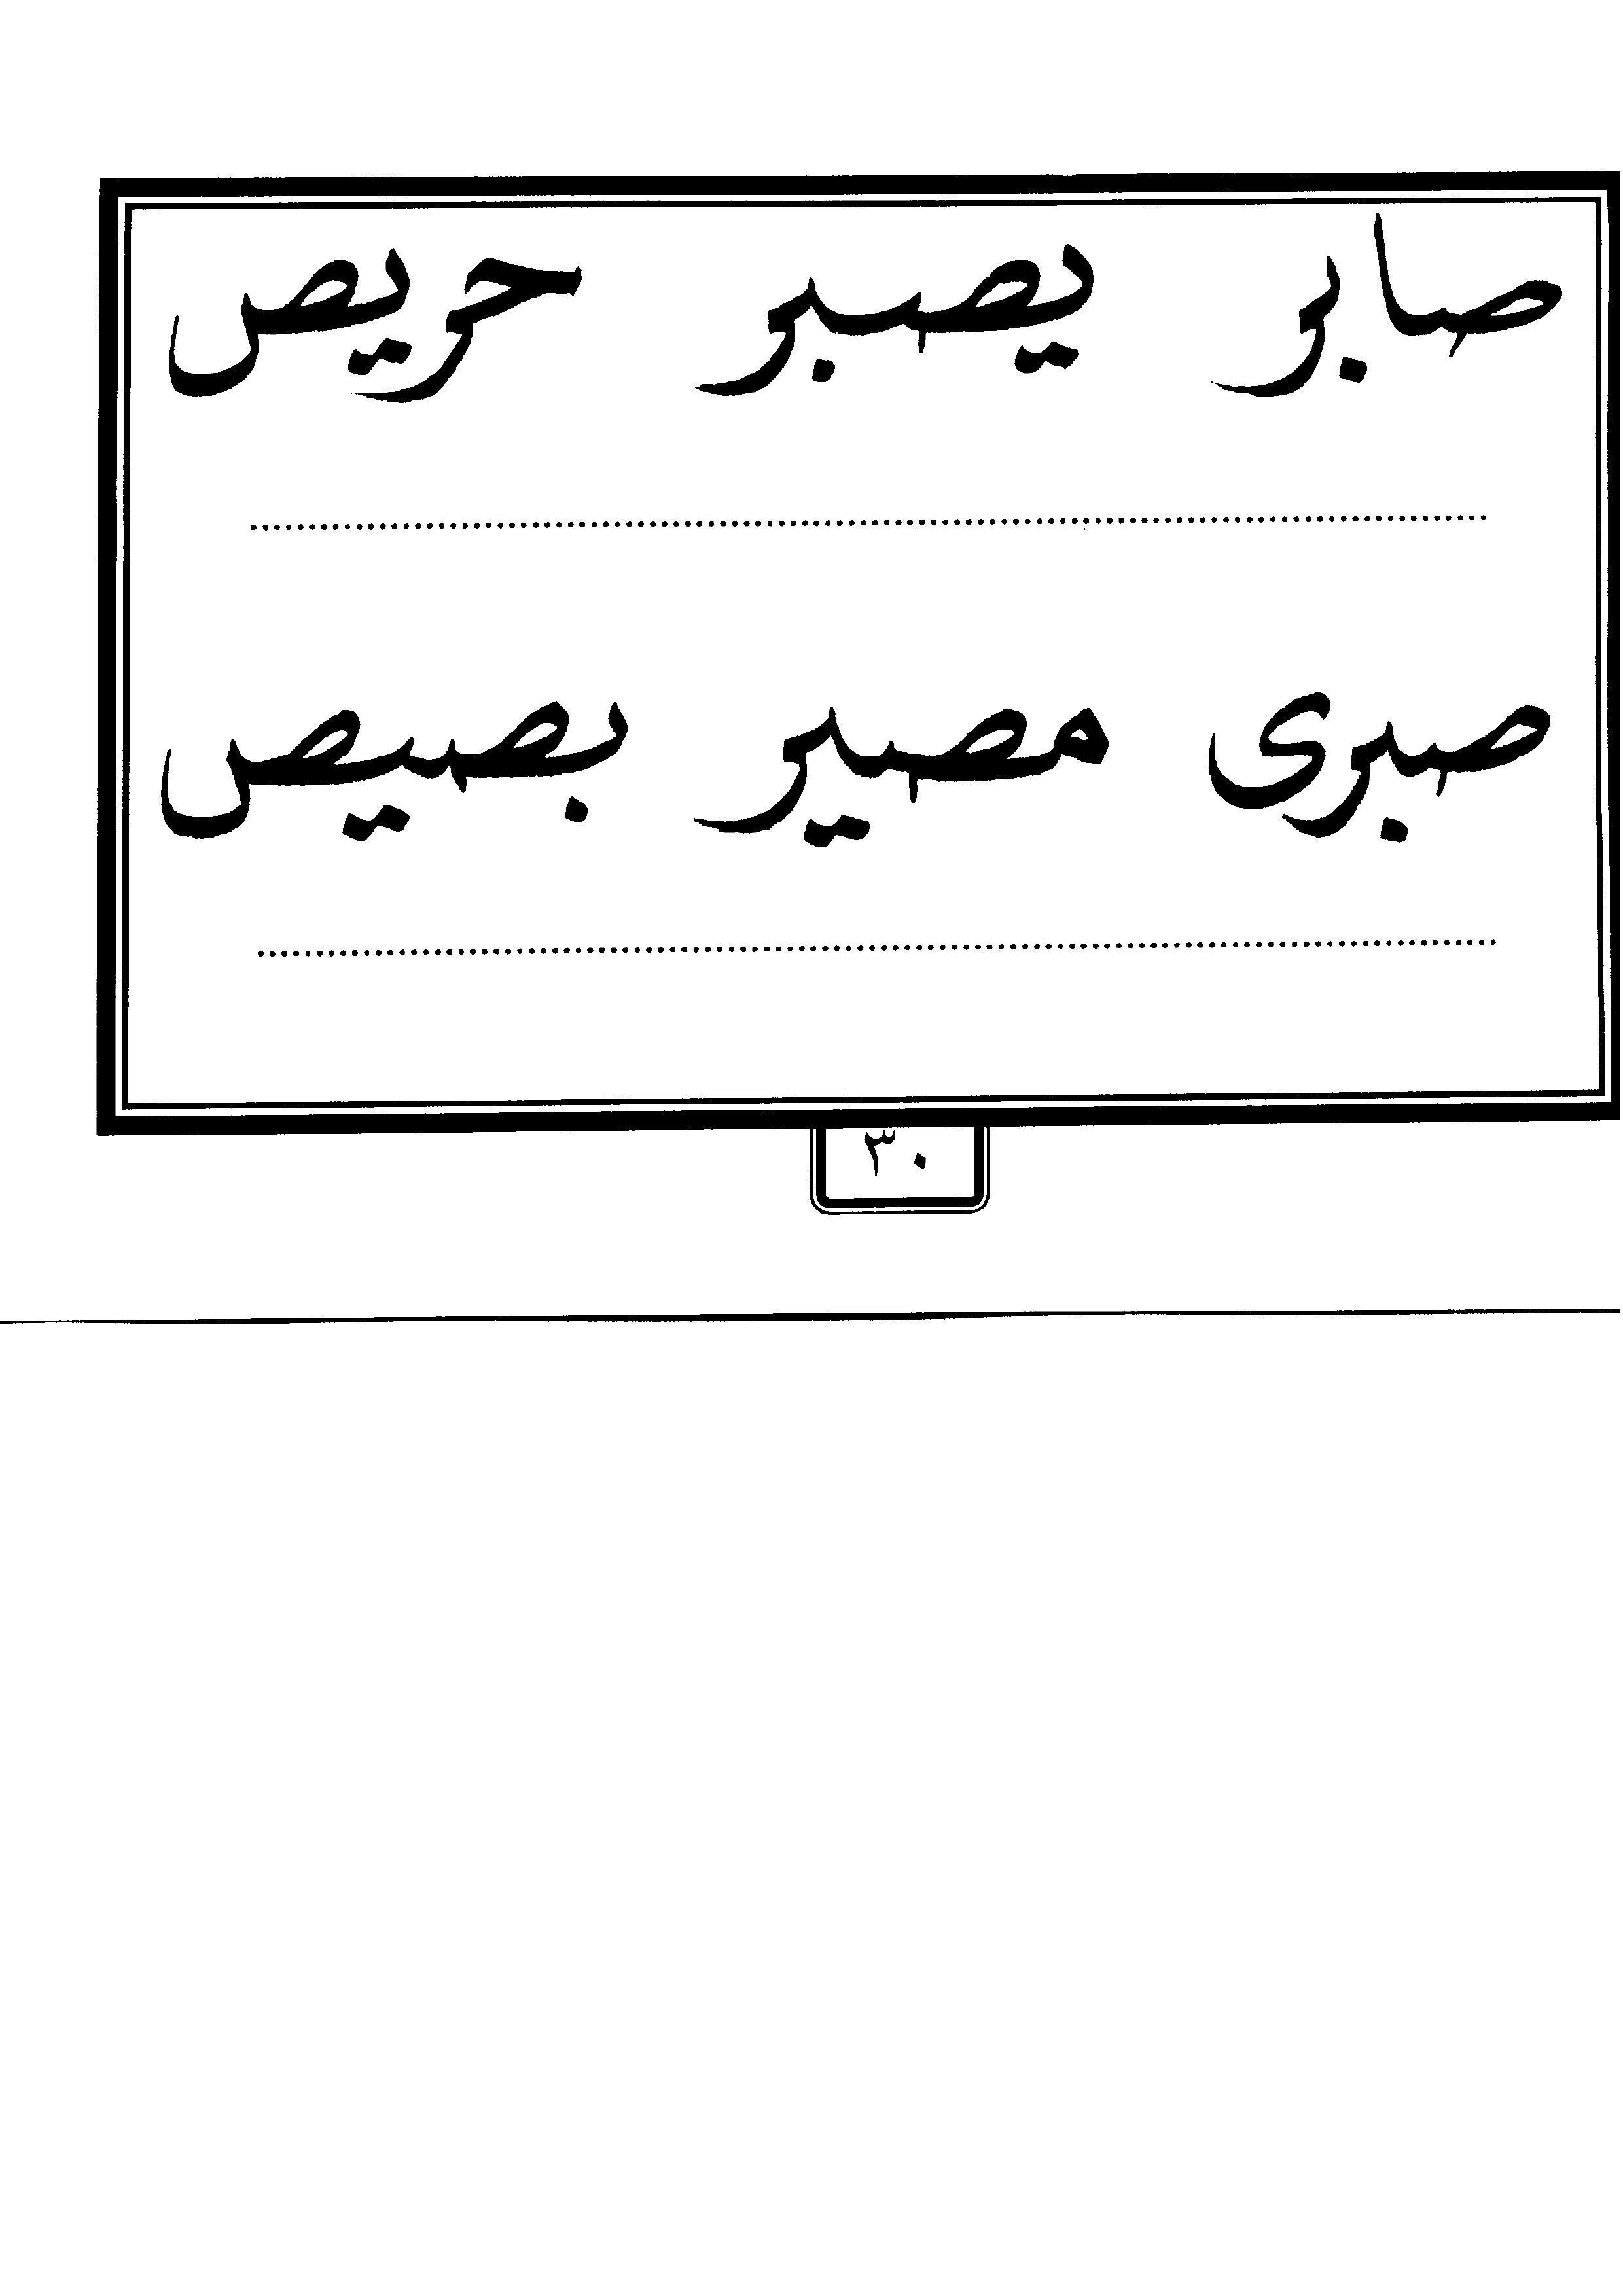 صابر يصبر حريص
صبرى مصير بصيص
٣٠